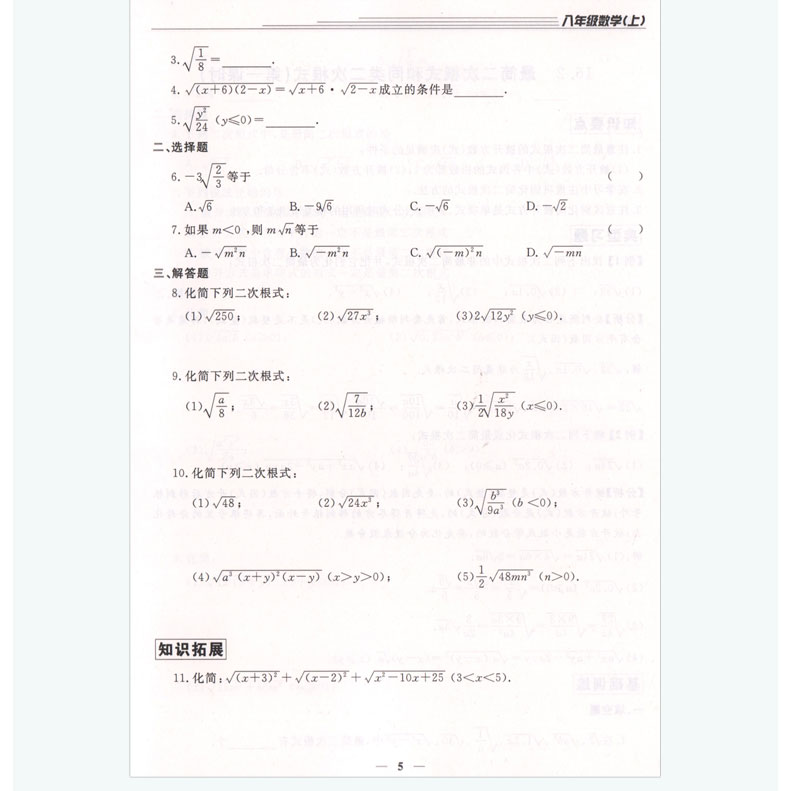 八年级数学(上)
3. √(1/8) = ______.
4. √((x+6)(2-x)) = √(x+6) · √(2-x)成立的条件是______.
5. √(y²/24) (y⩽0) = ______.
二、选择题
6. -3√(2/3)等于 ( )
A. √6 B. -9√6 C. -√6 D. -√2
7. 如果 m<0 ,则 m√n等于 ( )
A. -√(m²n) B. √(-m²n) C. √((-m)²n) D. √(-mn)
三、解答题
8. 化简下列二次根式:
(1)√250; (2)√(27x³); (3)2√(12y²) (y⩽0).
9. 化简下列二次根式:
(1)√(a/8); (2)√(7/12b); (3)1/2√(x²/18y) (x⩽0).
10. 化简下列二次根式:
(1)√48; (2)√(24x³); (3)√(b³/9a³) (b<0);
(4)√(a³(x+y)²(x-y)) (x>y>0); (5)1/2√(48mn³) (n>0).
知识拓展
11. 化简: √((x+3)²) + √((x-2)²) + √(x²-10x+25) (3<x<5).
— 5 —